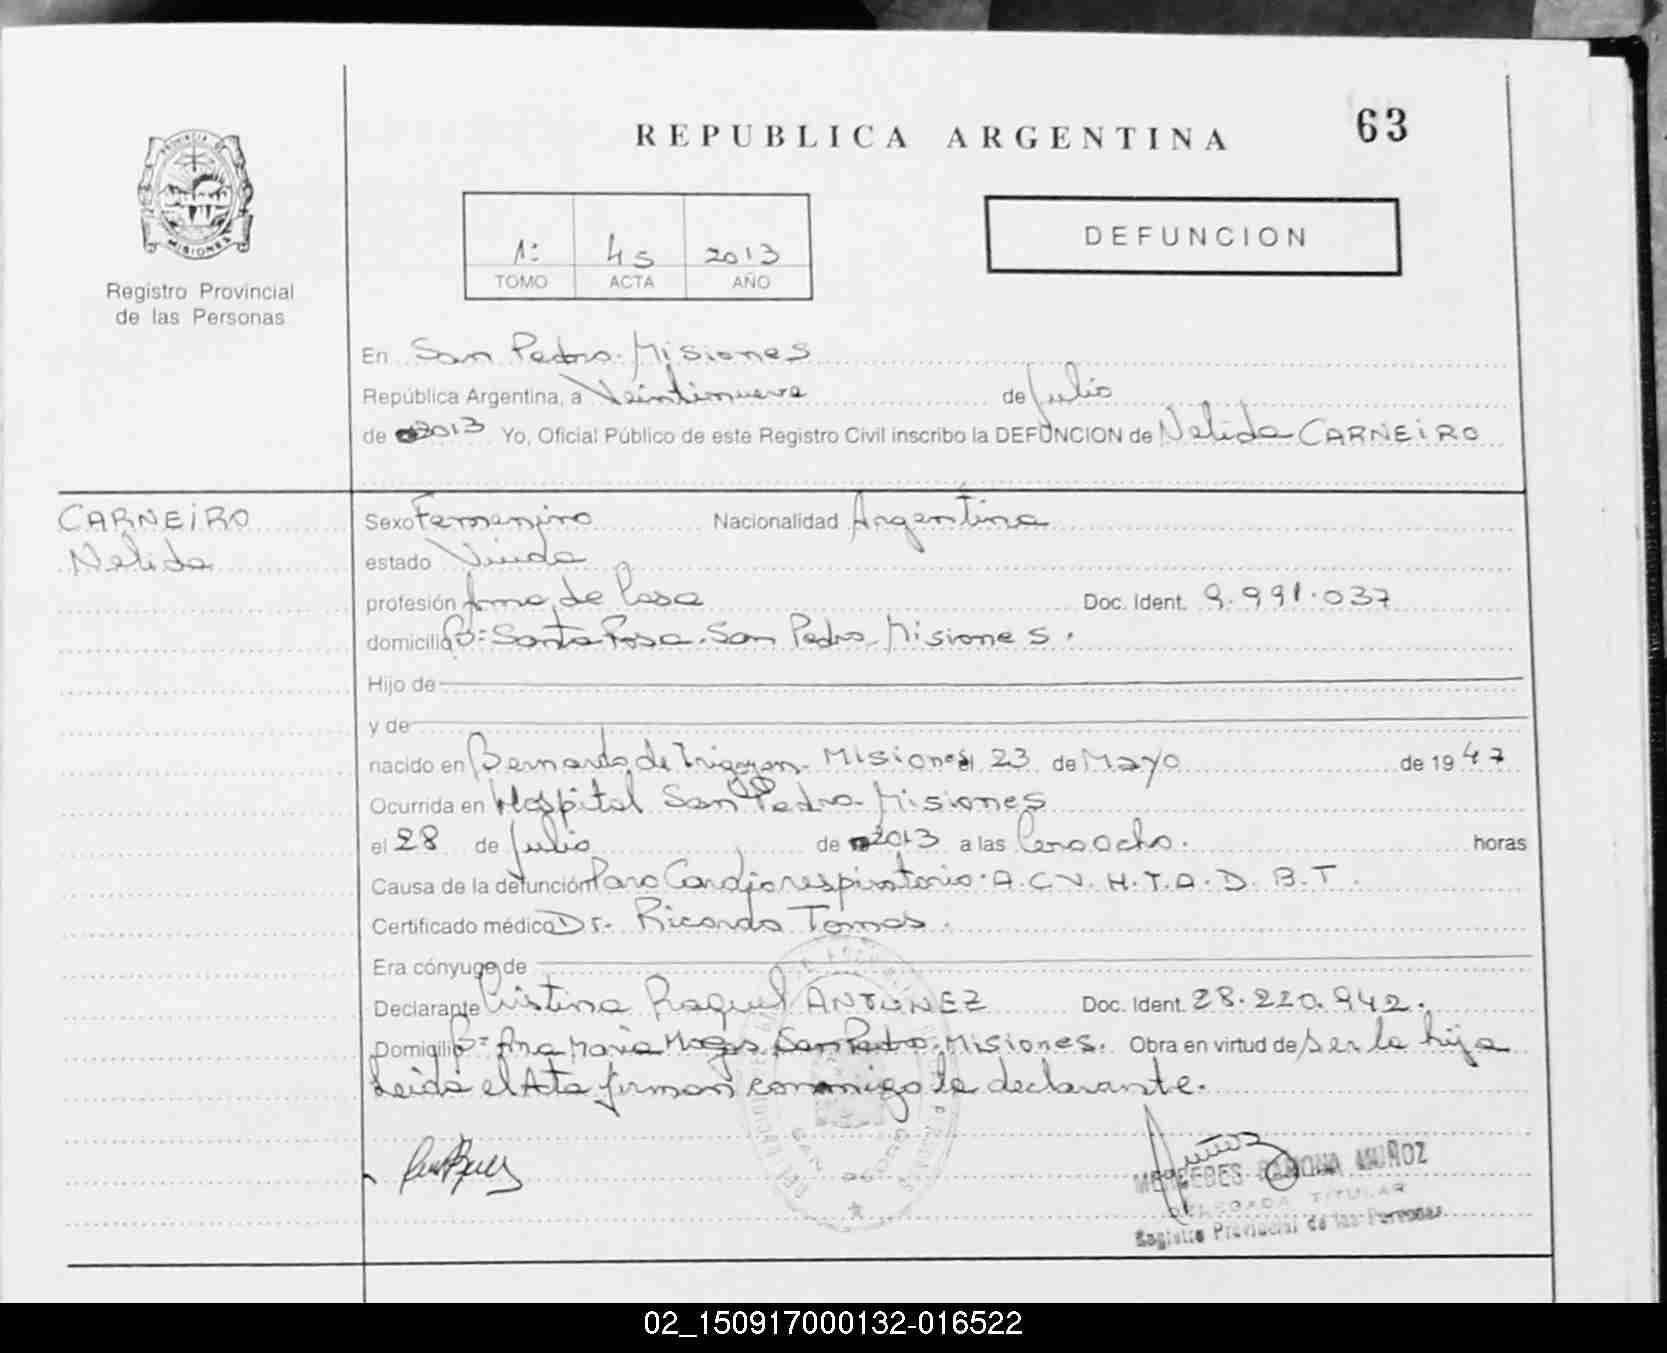 REPUBLICA ARGENTINA
63
PROVINCIA DE
MISIONES
Registro Provincial
de las Personas
1: 45 2013
TOMO ACTA AÑO
DEFUNCION
En San Pedro. Misiones
República Argentina, a Veintinueve de Julio
de 2013 Yo, Oficial Público de este Registro Civil inscribo la DEFUNCION de Nelida CARNEIRO
CARNEIRO
Nelida
Sexo Femenino Nacionalidad Argentina
estado Viuda
profesión Ama de Casa Doc. Ident. 9.991.037
domicilio Bº= Santa Rosa. San Pedro. Misiones.
Hijo de
y de
nacido en Bernardo de Irigoyen. Misiones el 23 de Mayo de 1947
Ocurrida en Hospital San Pedro. Misiones
el 28 de Julio de 2013 a las Cero Ocho. horas
Causa de la defunción Paro Cardiorespiratorio. A.C.V. H.T.A. D.B.T.
Certificado médico Dr. Ricardo Tomas.
Era cónyuge de
Declarante Cristina Raquel ANTUNEZ Doc. Ident. 28.220.942.
Domicilio Bº= Ana Maria San Pedro. Misiones. Obra en virtud de ser la hija
Leida el Acta firman conmigo la declarante.
MERCEDES RAMONA MUÑOZ
DELEGADA TITULAR
Registro Provincial de las Personas
02_150917000132-016522